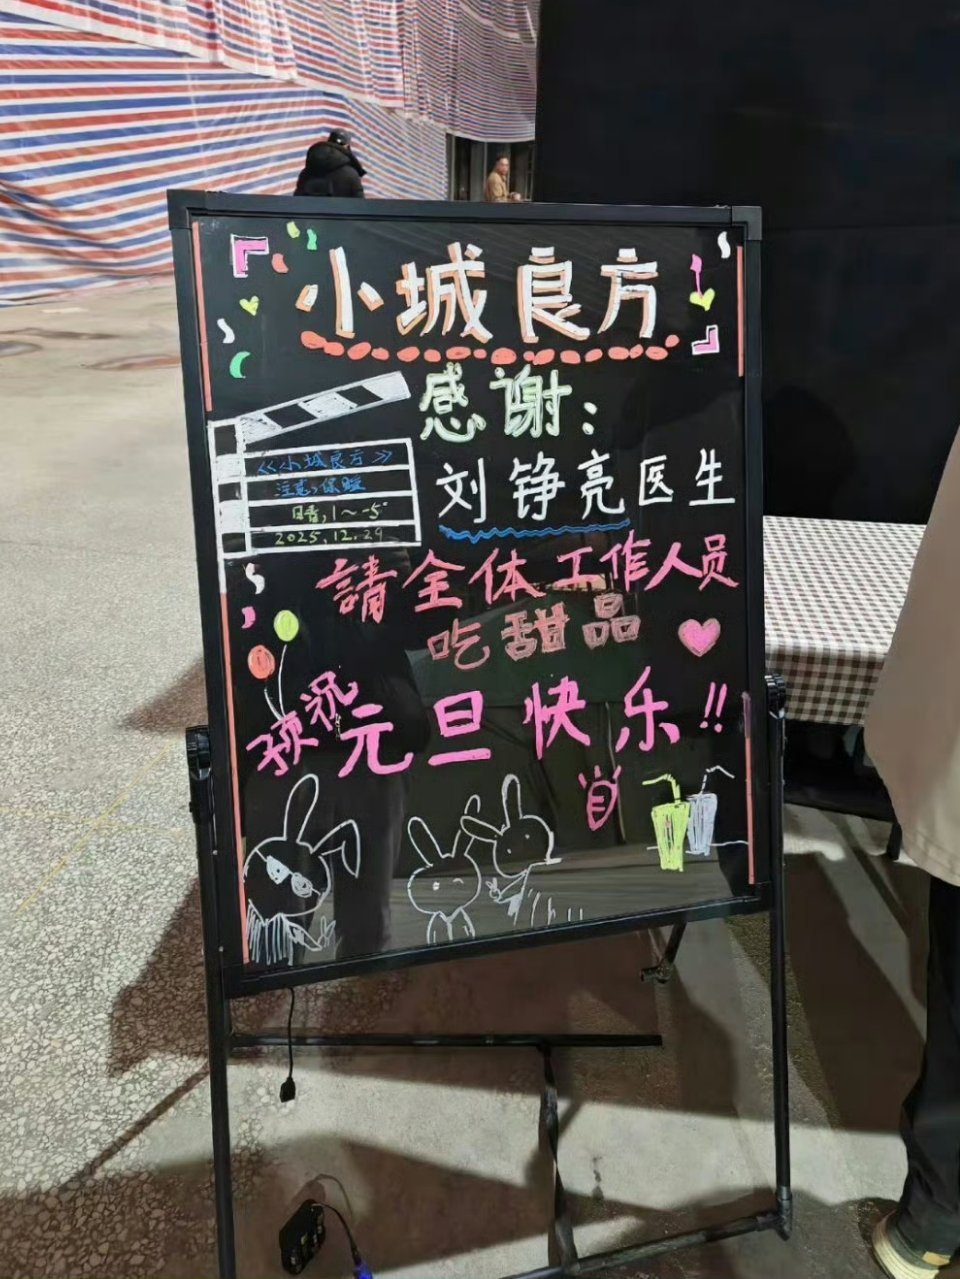 小城良方
感谢:
刘铮亮医生
《小城良方》
注意,保暖
1~-5°
2025.12.29
請全体工作人员
吃甜品
预祝
元旦快乐!!